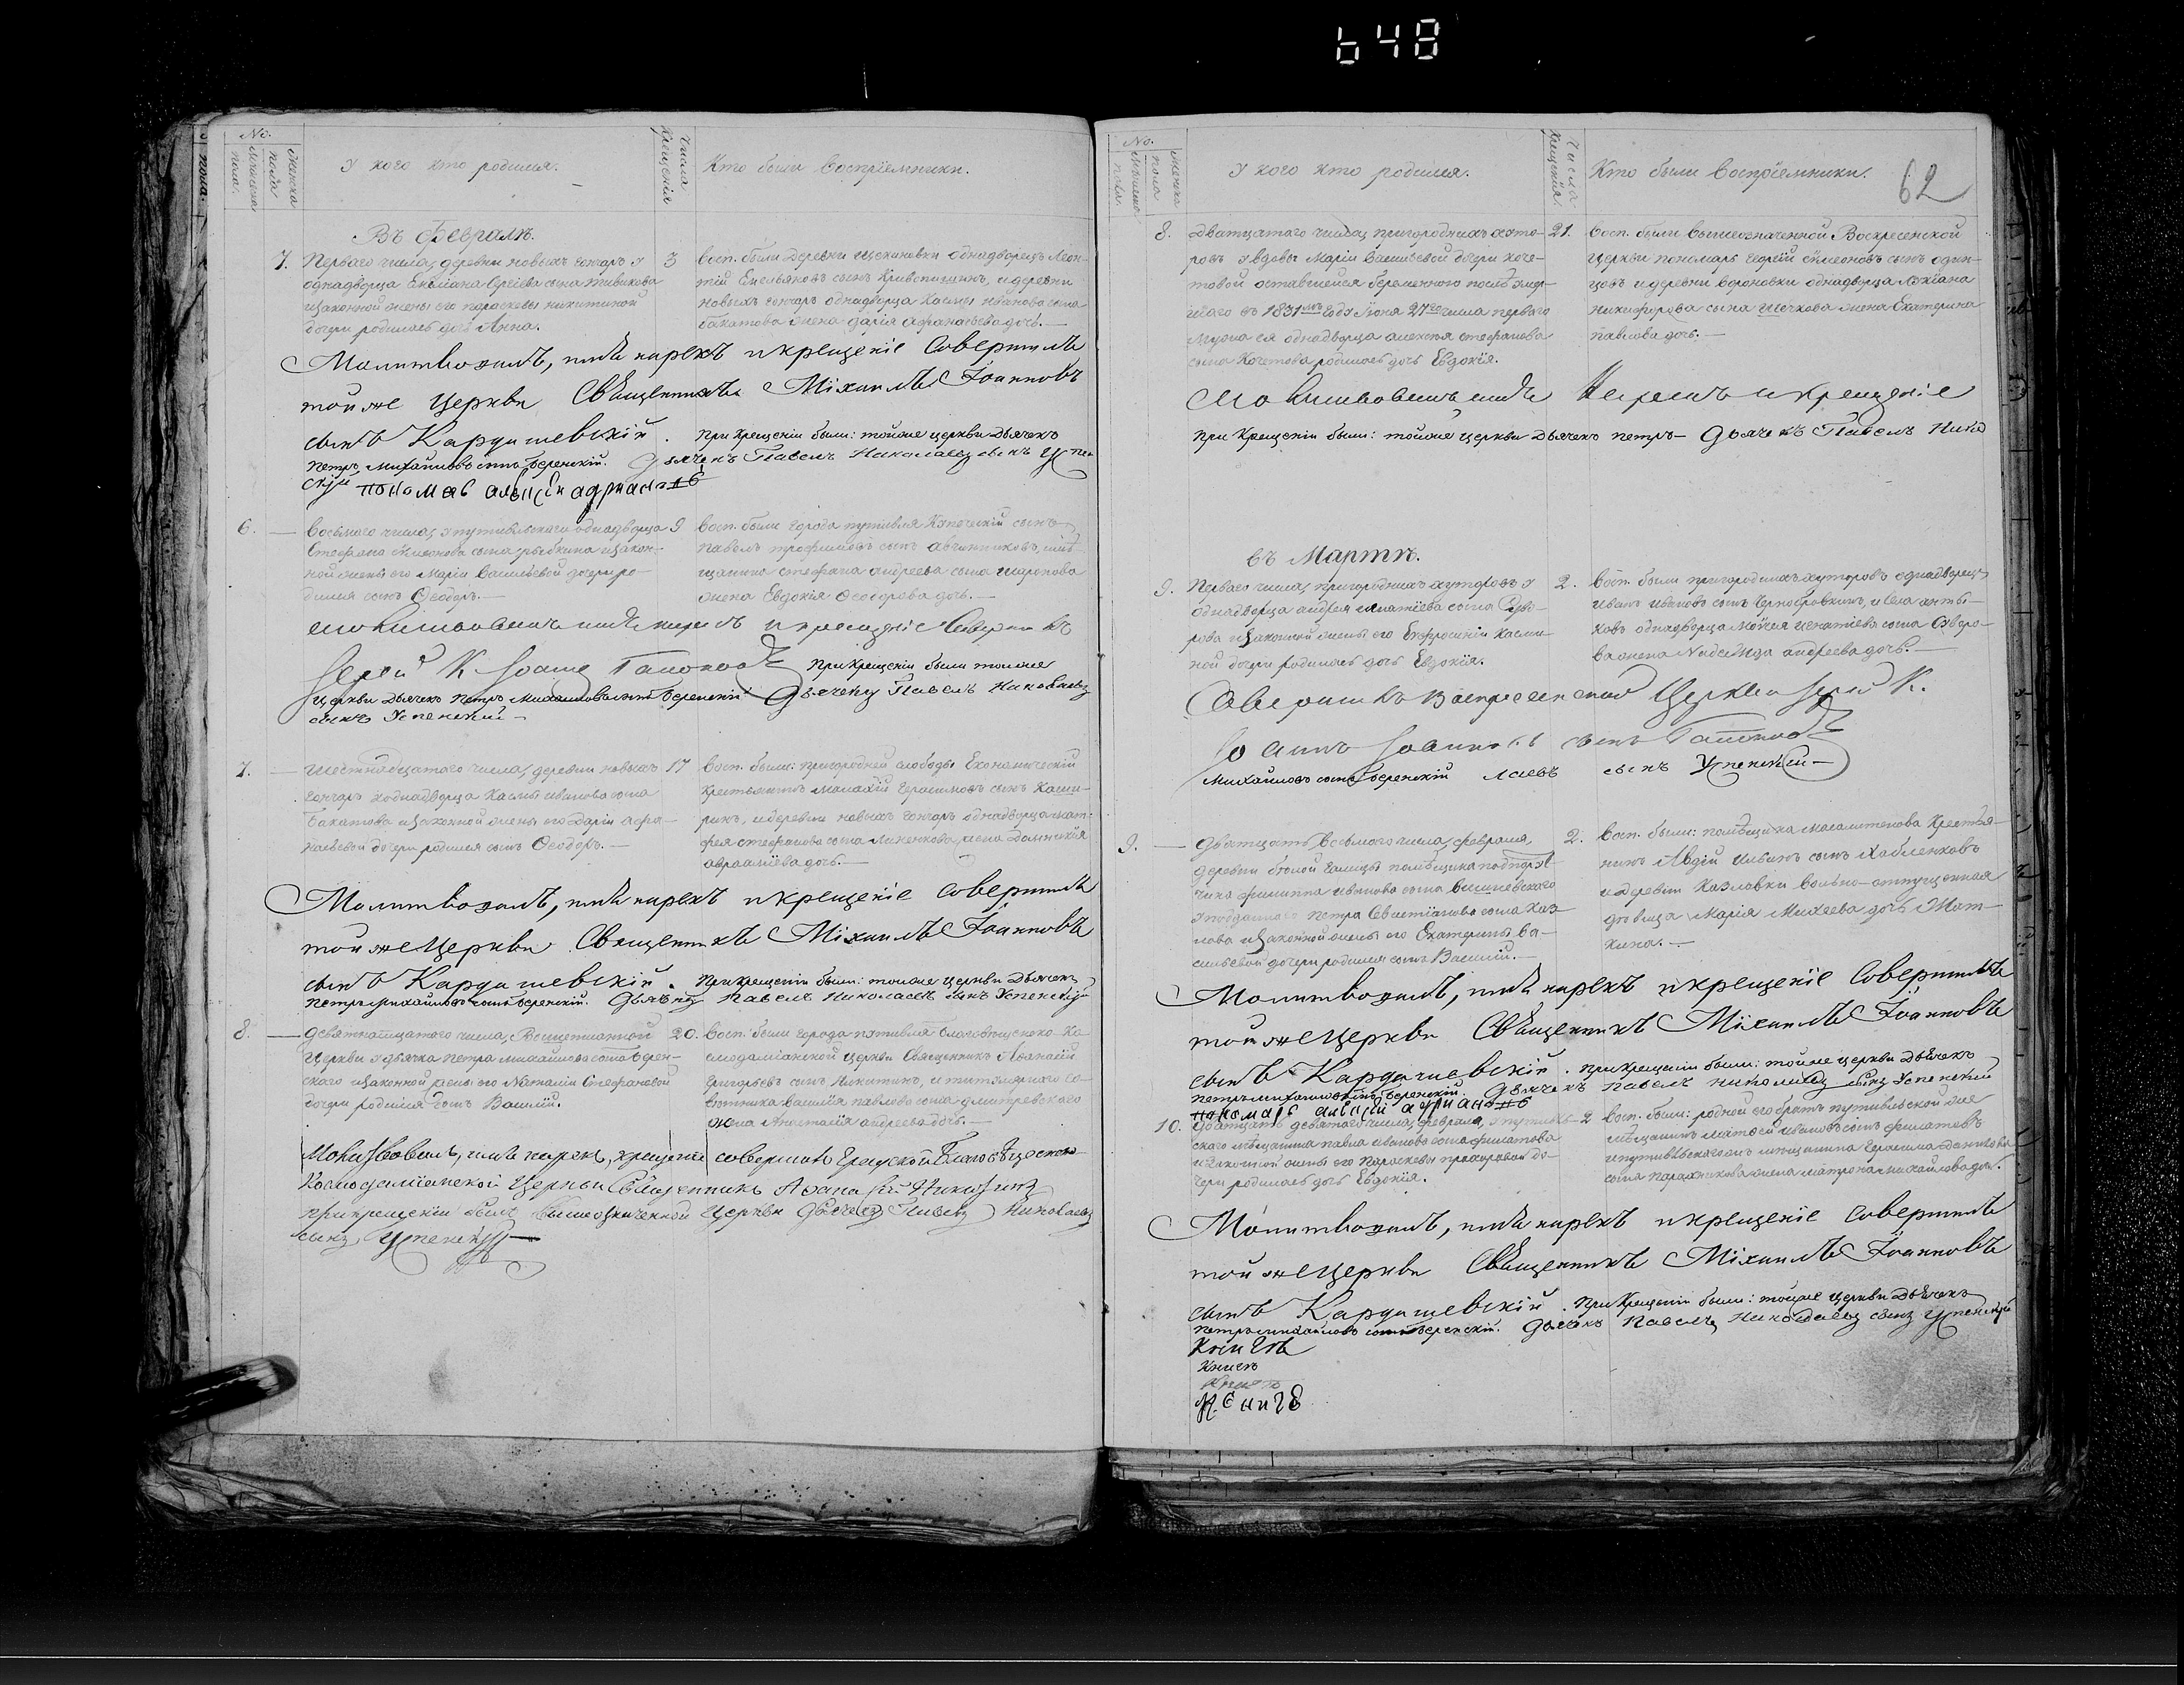 648
No.
Мужеска пола.
Женска пола
У кого кто родился.
Числа Крещенія
Кто были Воспріемники.
Въ Февралѣ.
7. Перваго числа, деревни новыхъ гончаръ у
однадворца Емельяна Сергѣева сына
и законной жены его параскевы никитиной
дочери родилась дочь Анна.
3
Восп. были Деревни Щекиновки однадворецъ Леон-
тій Емельяновъ сынъ и деревни
новыхъ гончаръ однадворца Касмы иванова сына
бакатова жена дарія афанасьева дочь.
Молитвовалъ, имя нарекъ и крещеніе Совершилъ
той же Церкви Священникъ Міхаилъ Іоанновъ
сынъ Кардашевскій. При Крещеніи были: тойже церкви Дьячекъ
петръ Михайловъ сынъ беренскій. Дьячекъ Павелъ Николаевъ сынъ Успен
скій
6. Восьмого числа, у путивльскаго однадворца
Стефана сына рыбкина и закон-
ной жены его Маріи Васильевой дочери ро-
дился сынъ Ѳеодоръ.
9
Восп. были города путивля Купеческій сынъ
павелъ трофимовъ сынъ овчинниковъ, мѣ-
щанина стефана андреева сына
жена Евдокія Ѳеодорова дочь.
Молитвовалъ имя нарекъ и крещеніе Совершилъ
Іерей К. Іоаннъ При Крещеніи были тойже
Церкви Дьячекъ петръ Михайловъ сынъ беренскій Дьячекъ Павелъ Николаевъ
сынъ Успенскій
7. Шестнадцатаго числа, деревни новыхъ
гончаръ у однадворца Касмы иванова сына
бакатова и законной жены его Даріи афа-
насьевой дочери родился сынъ Ѳеодоръ.
17
Восп. были: пригородней слободы Економическій
Крестьянинъ Малахій Герасимовъ сынъ Каши-
ринъ, и деревни новыхъ гончаръ однадворца
стефанова сына жена Домникія
авраамѣева дочь.
Молитвовалъ, имя нарекъ и крещеніе совершилъ
той же Церкви Священникъ Міхаилъ Іоанновъ
сынъ Кардашевскій. При Крещеніи были: тойже церкви Дьячекъ
петръ Михайловъ сынъ беренскій. Дьячекъ Павелъ Николаевъ сынъ Успенскій
8. Девятнатцатаго числа,
Церкви у дьячка петра михайлова сына берен-
скаго и законной жены его Наталіи Стефановой
дочери родился сынъ Василій.
20.
Восп. были города путивля Благовѣщенско-Ко-
смодаміанской церкви Священникъ Аѳанасій
Григорьевъ сынъ Никитинъ, и титулярнаго со-
вѣтника василія павлова сына дмитревского
жена Анастасія андреева дочь.
Молитвовалъ, имя нарекъ, крещеніе совершилъ Градской Благовѣщенско
Космодаміанской Церкви Священникъ Аѳанасій Никитинъ
при крещеніи былъ вышеозначенной Церкви Дьячекъ Павелъ Николаевъ
сынъ Успенскій
No.
Мужеска пола.
Женска пола
У кого кто родился.
Числа Крещенія.
Кто были Воспріемники.
62
8. Дватцатаго числа, пригородныхъ хуто-
ровъ у вдовы Маріи Васильевой дочери коче-
товой оставшейся беременною послѣ умер-
шаго въ 1831мъ году Іюня 27го числа перваго
мужа ея однадворца алексея стефанова
сына Кочетова родилась дочь Евдокія.
21.
Восп. были вышеозначенной Воскресенской
церкви пономарь Георгій Симеоновъ сынъ один-
цовъ и деревни вороновки однадворца Лукіана
никифорова сына жена Екатерина
павлова дочь.
Молитвовалъ имя Нарекъ и крещеніе
При Крещеніи были: тойже церкви Дьячекъ петръ Дьячекъ Павелъ Нико
въ Мартѣ.
9. Перваго числа, пригородныхъ хуторовъ у
однадворца андрея игнатіева сына
и законной жены его Ефросиніи касми-
ной дочери родилась дочь Евдокія.
2.
Восп. были пригородныхъ хуторовъ однадворецъ
иванъ ивановъ сынъ Чернобровкинъ, и села
однадворца Моисея игнатіева сына
ва жена Надежда андреева дочь.
Совершилъ Воскресенской Церкви Іерей К.
Іоаннъ Іоанновъ сынъ
Михайловъ сынъ беренскій лаевъ сынъ Успенскій
9. Дватцать Восьмого числа февраля,
деревни бѣлой Галицы помѣщика подпору-
чика филиппа иванова сына вишневского
у подданнаго петра Севастіанова сына Коз-
лова и законной жены его Екатерины ва-
сильевой дочери родился сынъ Василій.
2.
Восп. были: помѣщика Крестья-
нинъ Авдій Ильинъ сынъ
и деревни Казлавки вольно-отпущенная
дѣвица Марія Михеева дочь
Молитвовалъ, имя нарекъ и крещеніе Совершилъ
той же Церкви Священникъ Міхаилъ Іоанновъ
сынъ Кардашевскій. При крещеніи были: тойже церкви Дьячекъ
петръ михайловъ сынъ беренскій. Дьячекъ павелъ николаевъ сынъ Успенскій
пономарь
10. Дватцать девятаго числа, февраля, у путивль-
скаго мѣщанина павла иванова сына филатова
и законной жены его Параскевы прохоровой до-
чери родилась дочь Евдокія.
2
Восп. были: родной его братъ путивльской же
мѣщанинъ матѳей ивановъ сынъ филатовъ
и путивльскаго мѣщанина Герасима данилова
сына жена матрона михайлова доч.
Молитвовалъ, имя нарекъ и крещеніе совершилъ
той же Церкви Священникъ Міхаилъ Іоанновъ
сынъ Кардашевскій. При Крещеніи были: тойже Церкви Дьячекъ
петръ михайловъ сынъ беренскій. Дьячекъ Павелъ Николаевъ сынъ Успенскій